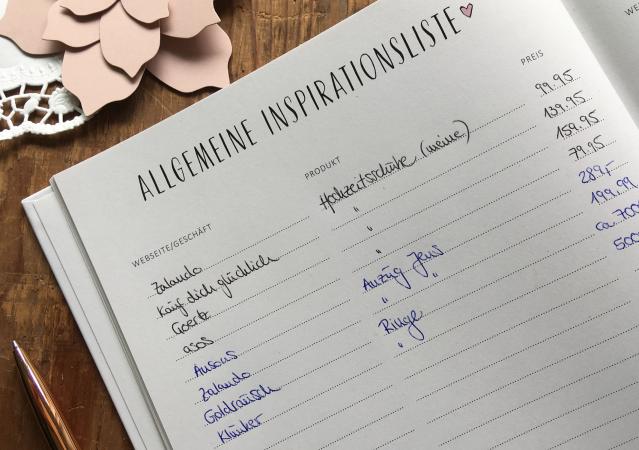 ALLGEMEINE INSPIRATIONSLISTE
WEBSEITE/GESCHÄFT PRODUKT PREIS
Zalando Hochzeitsschuhe (meine) 99.95
Kauf dich glücklich " 139.95
Goertz " 159.95
asos " 79.95
Ansons Anzug Jens 289,-
Zalando " " 199.99
Goldrausch Ringe ca 700
Klunker " 500